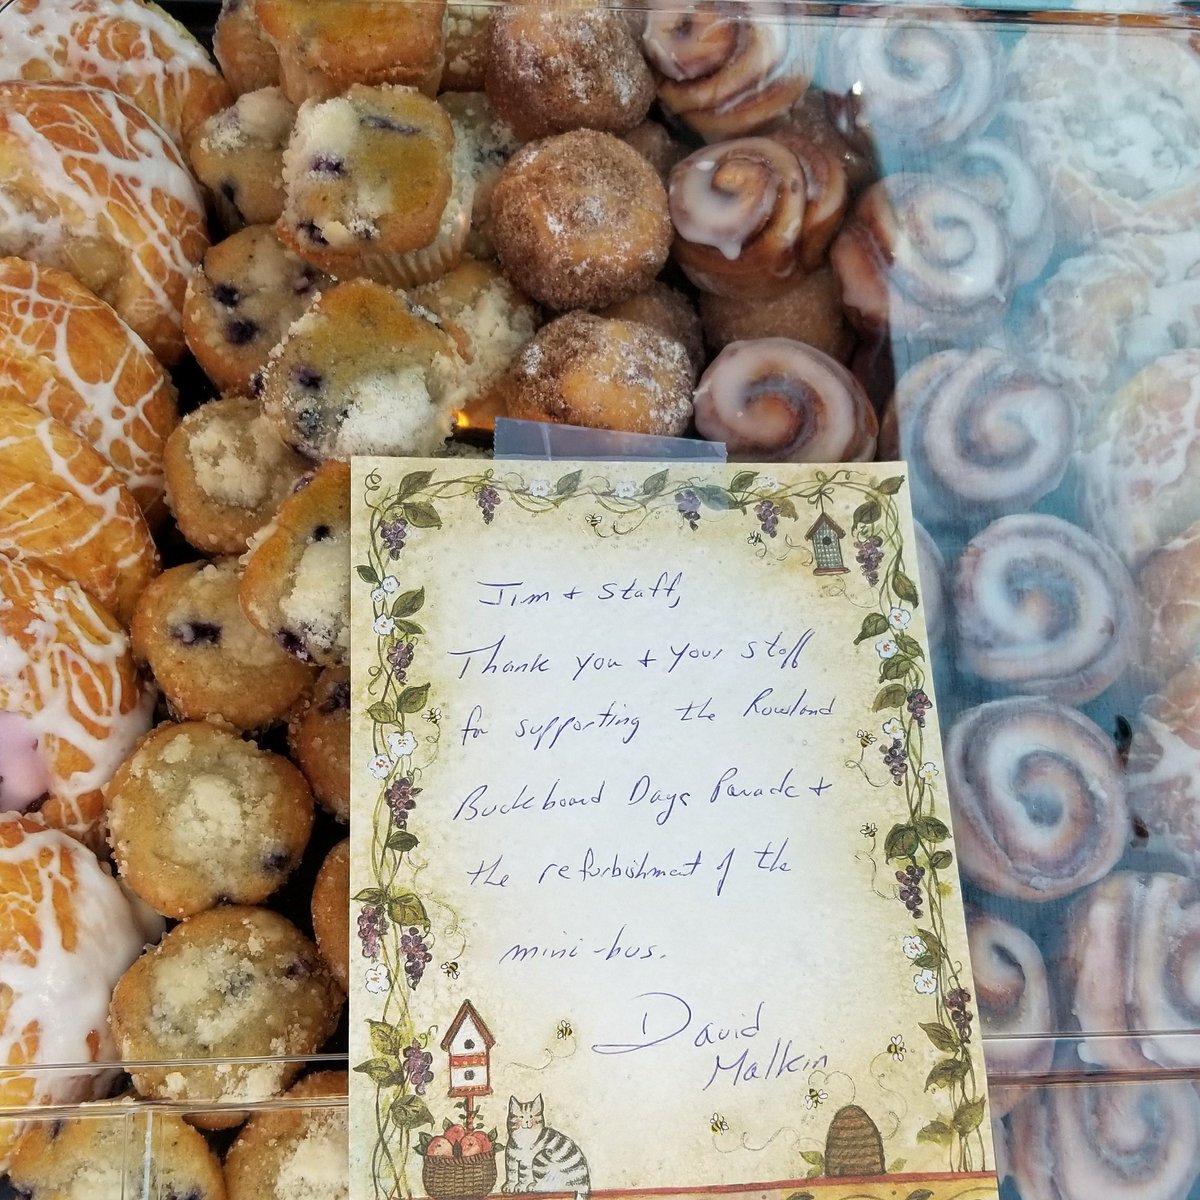 Jim + Staff,
Thank you + your staff
for supporting the Rowland
Buckboard Days Parade +
the refurbishment of the
mini-bus.
David
Malkin